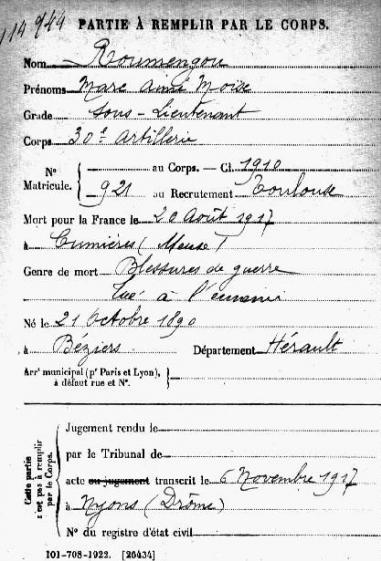 114 944
PARTIE À REMPLIR PAR LE CORPS.
Nom Roumengou
Prénoms Marc Aimé Moïse
Grade Sous-Lieutenant
Corps 30e Artillerie
N° Matricule. { au Corps. — Cl. 1910
921 au Recrutement Toulouse
Mort pour la France le 20 Août 1917
à Cumières (Meuse)
Genre de mort Blessures de guerre
Tué à l'ennemi
Né le 21 Octobre 1890
à Béziers Département Hérault
Arr' municipal (pr Paris et Lyon), à défaut rue et N°. {
Cette partie n'est pas à remplir par le Corps.
Jugement rendu le
par le Tribunal de
acte ou jugement transcrit le 6 Novembre 1917
à Nyons (Drôme)
N° du registre d'état civil
101-708-1922. [26434]